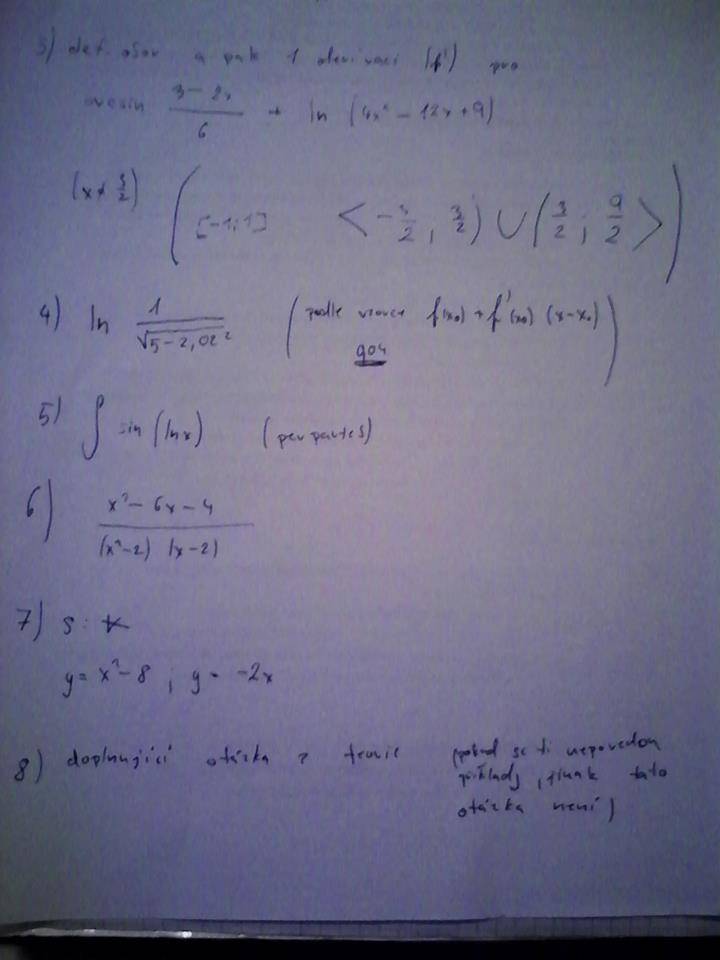 3) def. obor a pak 1 derivaci (f') pro
arcsin (3 - 2x)/6 + ln (4x² - 12x + 9)
(x ≠ 3/2) ( [-1;1] < -3/2 ; 3/2 ) ∪ ( 3/2 ; 9/2 > )
4) ln 1/√(5 - 2,02²) (podle vzorce f(x₀) + f'(x₀) (x - x₀)
904
5) ∫ sin (ln x) (per partes)
6) (x² - 6x - 4)/((x² - 2) (x - 2))
7) S:
y = x² - 8 ; y = -2x
8) doplňující otázka z teorie (pokud se ti nepovedou
příklady, jinak tato
otázka není)